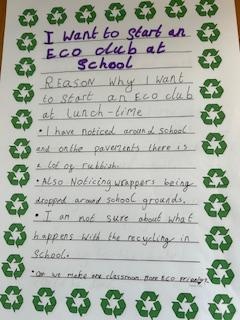 I want to start an
Eco club at
School
REASON why I want
to start an Eco club
at lunch-time
• I have noticed around school
and on the pavements there is
a lot of rubbish.
• Also Noticing wrappers being
dropped around school grounds.
• I am not sure about what
happens with the recycling in
School.
• Can we make one classroom more eco friendly?